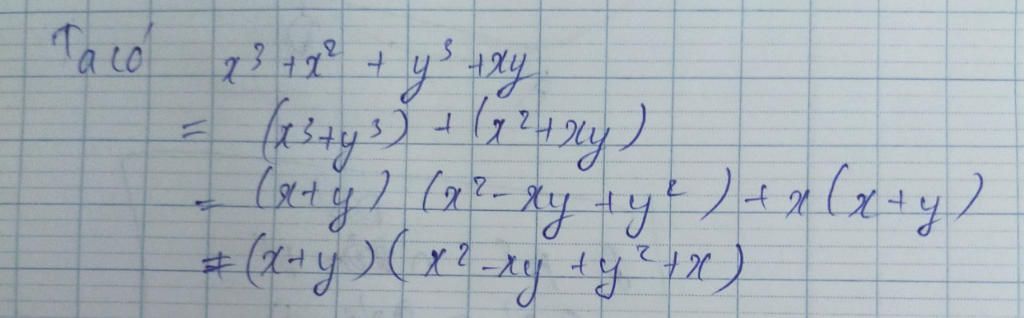 Ta có x³ + x² + y³ + xy
= (x³ + y³) + (x² + xy)
= (x + y) (x² - xy + y²) + x (x + y)
= (x + y) (x² - xy + y² + x)